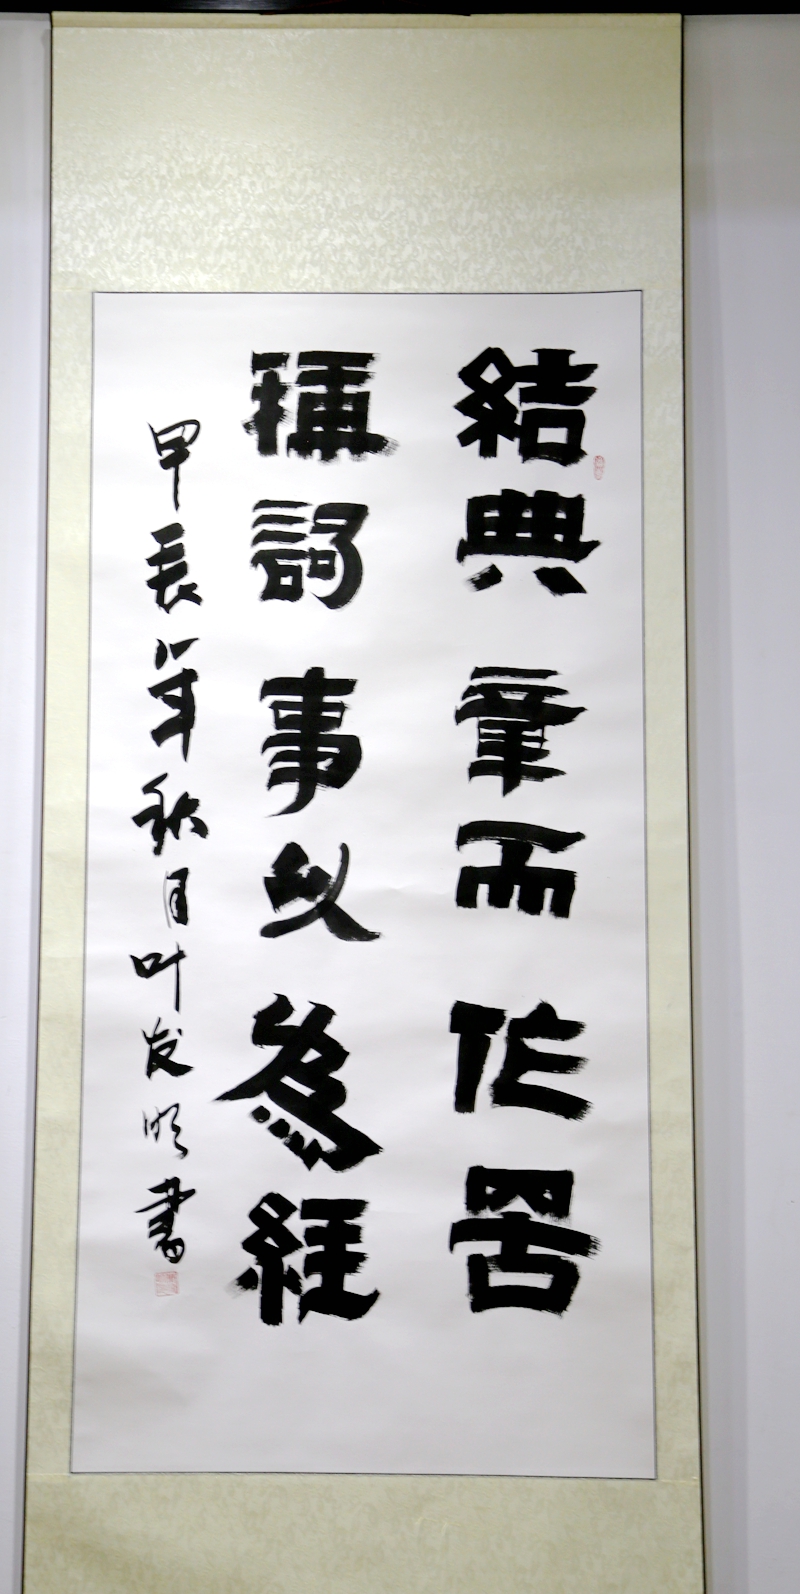 結典章而作罟
稱詞事以為經
甲辰年秋月叶发明書